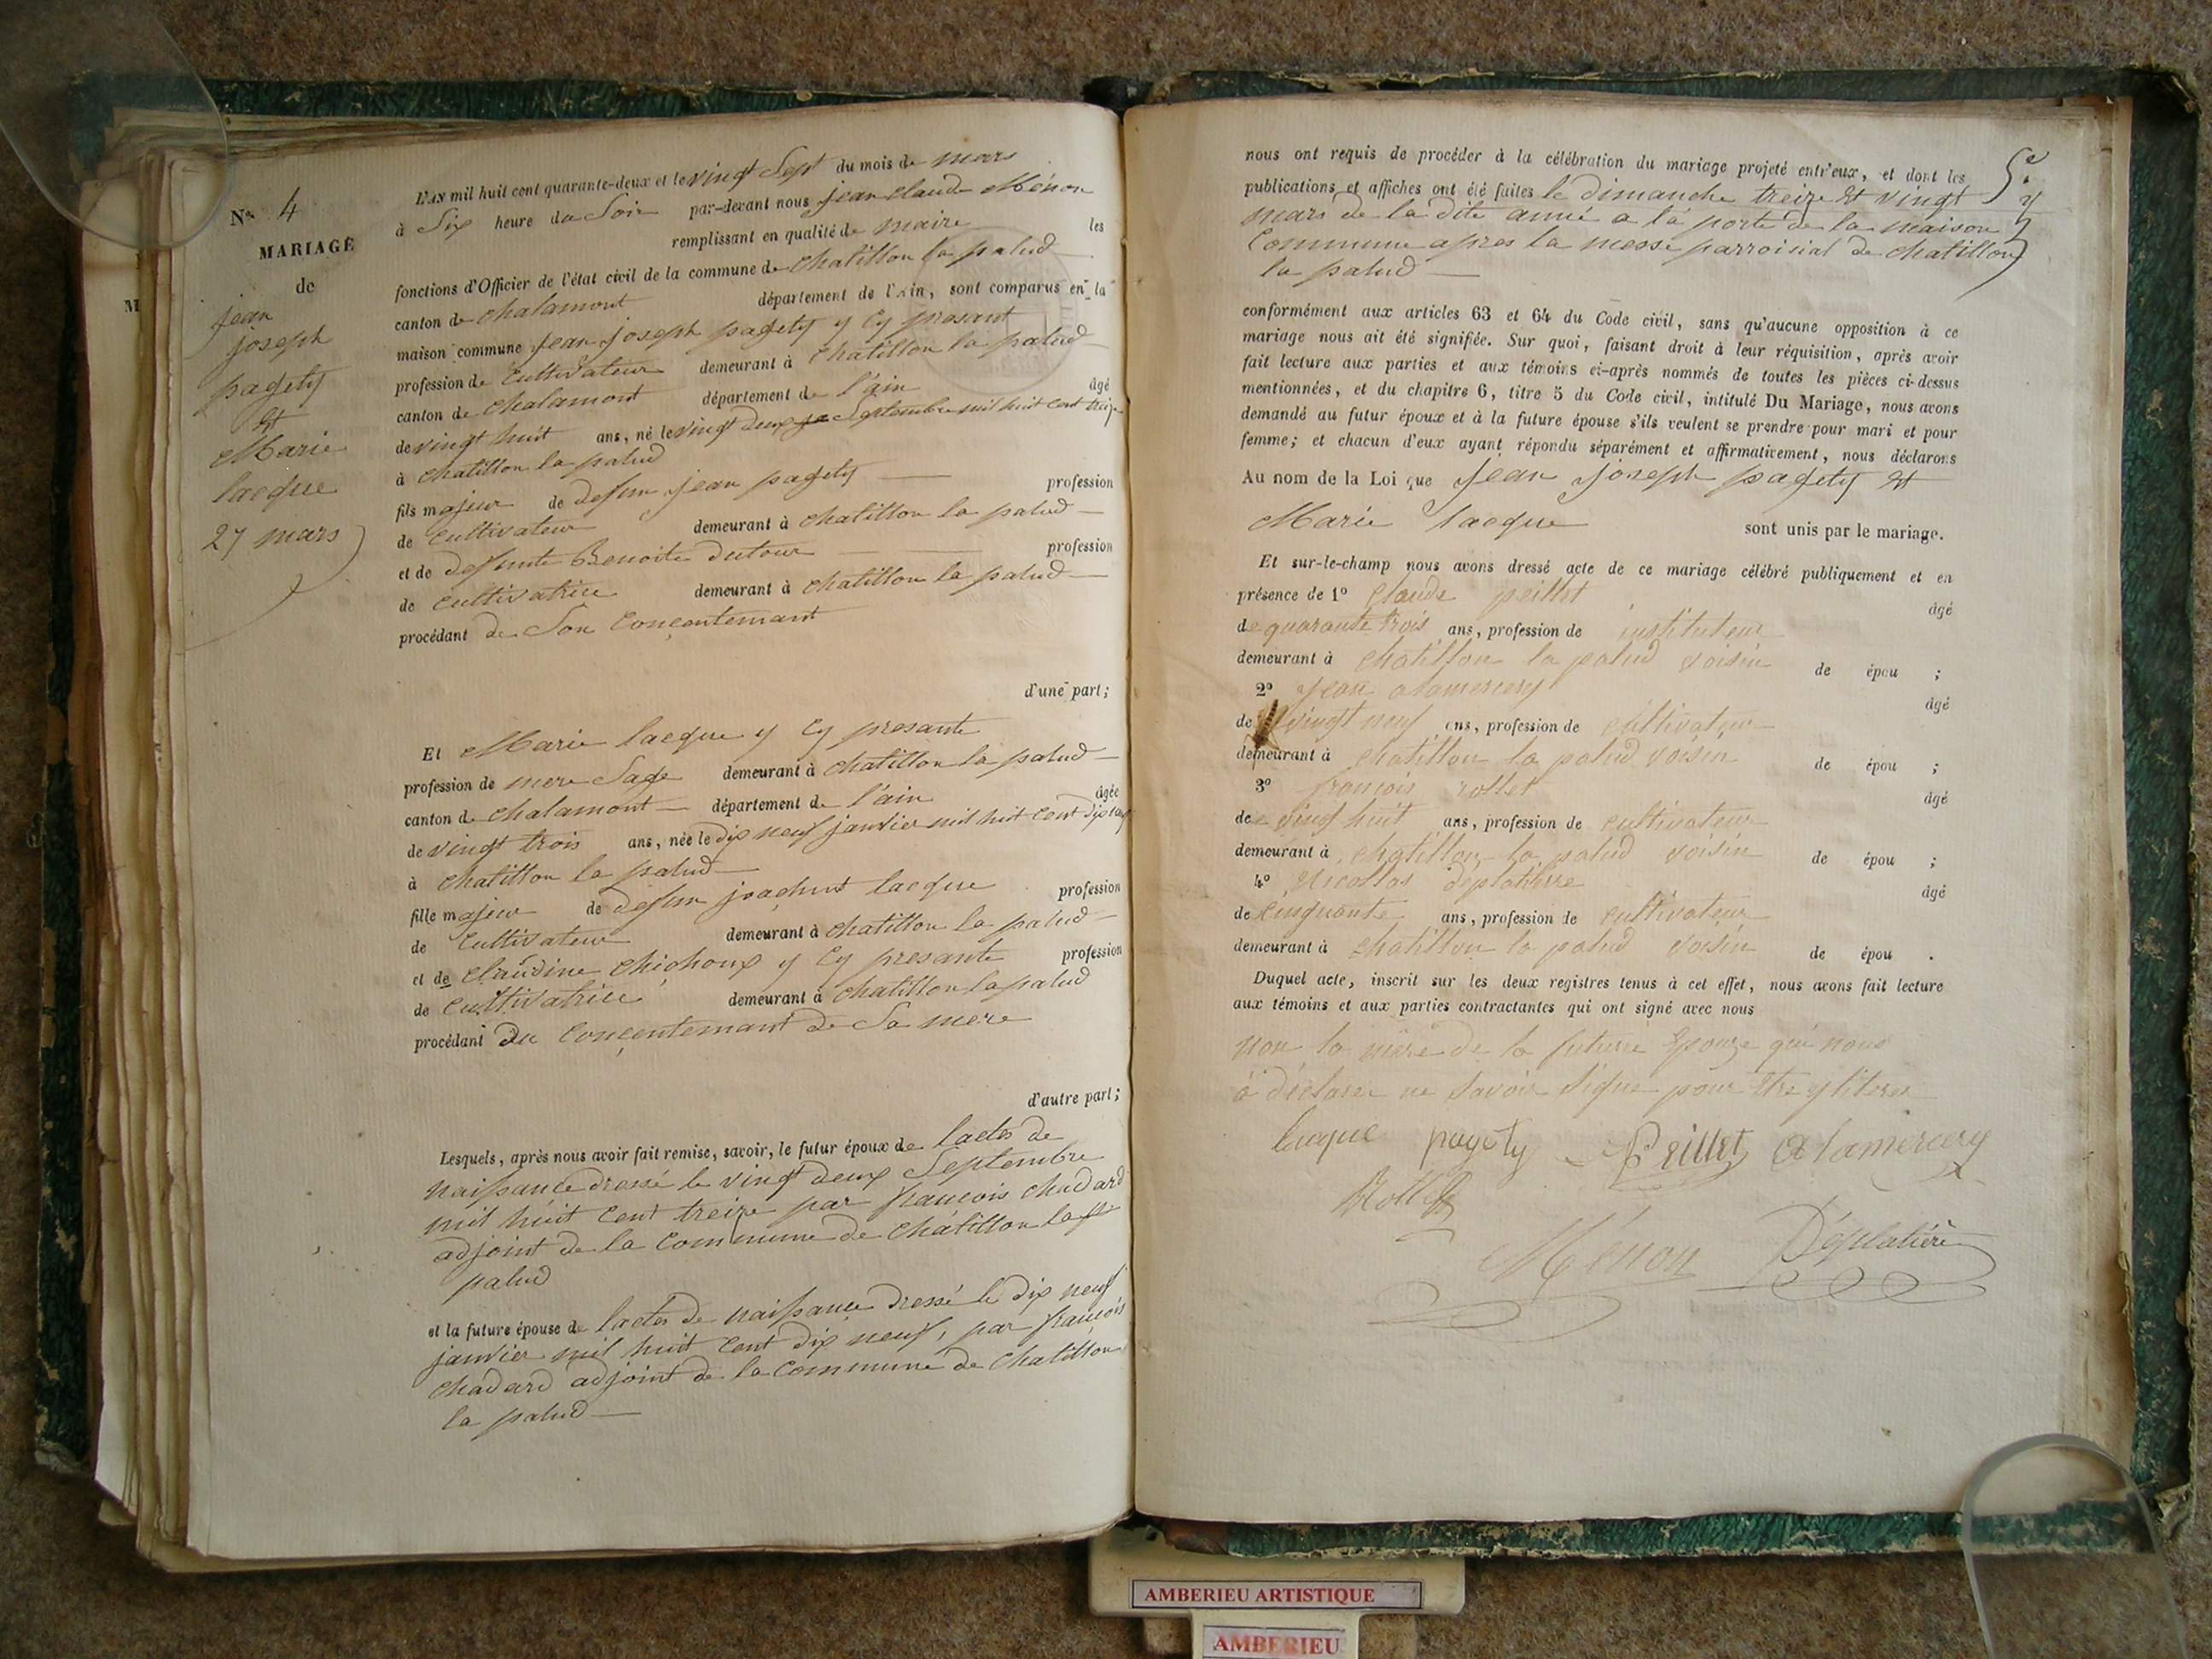 N° 4
MARIAGE
de
jean
joseph
pagety
et
Marie
lacque
27 mars
L'AN mil huit cent quarante-deux et le vingt Sept du mois de mars
à Six heure du Soir par-devant nous jean claude Ménon
remplissant en qualité de maire les
fonctions d'Officier de l'état civil de la commune de chatillon la palud
canton de chalamont département de l'Ain, sont comparus en la
maison commune jean joseph pagety y Cy presant
profession de Cultivateur demeurant à chatillon la palud
canton de chalamont département de l'ain âgé
de vingt huit ans, né le vingt deux Septembre mil huit cent treize
à chatillon la palud
fils majeur de defun jean pagety profession
de Cultivateur demeurant à chatillon la palud
et de defunte Benoite dutour profession
de cultivatrice demeurant à chatillon la palud
procédant de Son Conçentemant
d'une part;
Et Marie lacque y Cy presante
profession de mere Sage demeurant à chatillon la palud
canton de chalamont département de l'ain âgée
de vingt trois ans, née le dix neuf janvier mil huit cent dix neuf
à chatillon la palud
fille majeur de defun joachint lacque profession
de Cultivateur demeurant à chatillon la palud
et de claudine chichoux y Cy presante profession
de Cultivatrice demeurant à chatillon la palud
procédant du Conçentemant de Sa mere
d'autre part;
Lesquels, après nous avoir fait remise, savoir, le futur époux de lactes de
naissance dressé le vingt deux Septembre
mil huit cent treize par francois chadard
adjoint de la Commune de chatillon la
palud
et la future épouse de lactes de naissance dressé le dix neuf
janvier mil huit cent dix neuf, par françois
chadard adjoint de la commune de chatillon
la palud
nous ont requis de procéder à la célébration du mariage projeté entr'eux, et dont les
publications et affiches ont été faites le dimanche treize et vingt
mars de la dite anné a la porte de la maison
Commune apres la messe parroisial de chatillon
la palud
conformément aux articles 63 et 64 du Code civil, sans qu'aucune opposition à ce
mariage nous ait été signifiée. Sur quoi, faisant droit à leur réquisition, après avoir
fait lecture aux parties et aux témoins ci-après nommés de toutes les pièces ci-dessus
mentionnées, et du chapitre 6, titre 5 du Code civil, intitulé Du Mariage, nous avons
demandé au futur époux et à la future épouse s'ils veulent se prendre pour mari et pour
femme; et chacun d'eux ayant répondu séparément et affirmativement, nous déclarons
Au nom de la Loi que jean joseph pagety et
Marie lacque sont unis par le mariage.
Et sur-le-champ nous avons dressé acte de ce mariage célébré publiquement et en
présence de 1° Claude peillet âgé
de quarante trois ans, profession de instituteur
demeurant à chatillon la palud voisin de épou ;
2° jean alamercery âgé
de vingt neuf ans, profession de cultivateur
demeurant à chatillon la palud voisin de épou ;
3° francois rollet âgé
de vingt huit ans, profession de cultivateur
demeurant à chatillon la palud voisin de épou ;
4° Nicollas déplatière âgé
de Cinquante ans, profession de cultivateur
demeurant à chatillon la palud voisin de épou .
Duquel acte, inscrit sur les deux registres tenus à cet effet, nous avons fait lecture
aux témoins et aux parties contractantes qui ont signé avec nous
non la mère de la future Epouze qui nous
à déclarer ne Savoir Signe pour être yliterer
lacque pagety Peillet Alamercery
Rollet
Ménon Déplatière
AMBERIEU ARTISTIQUE
AMBERIEU